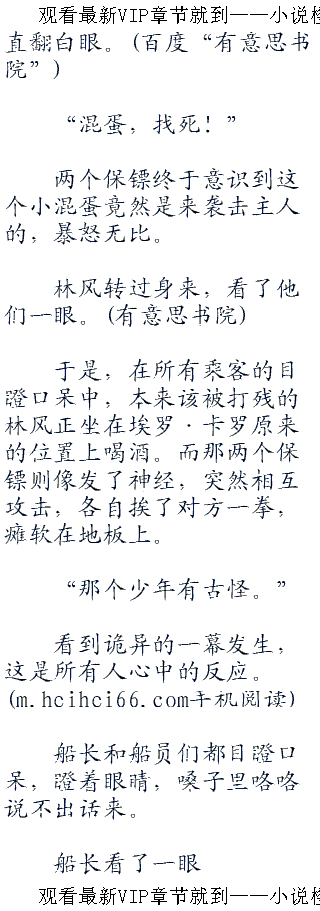 观看最新VIP章节就到——小说
直翻白眼。(百度“有意思书
院”)
“混蛋，找死！”
两个保镖终于意识到这
个小混蛋竟然是来袭击主人
的，暴怒无比。
林风转过身来，看了他
们一眼。(有意思书院)
于是，在所有乘客的目
瞪口呆中，本来该被打残的
林风正坐在埃罗·卡罗原来
的位置上喝酒。而那两个保
镖则像发了神经，突然相互
攻击，各自挨了对方一拳，
瘫软在地板上。
“那个少年有古怪。”
看到诡异的一幕发生，
这是所有人心中的反应。
(m.hcihci66.com手机阅读)
船长和船员们都目瞪口
呆，瞪着眼睛，嗓子里咯咯
说不出话来。
船长看了一眼
观看最新VIP章节就到——小说